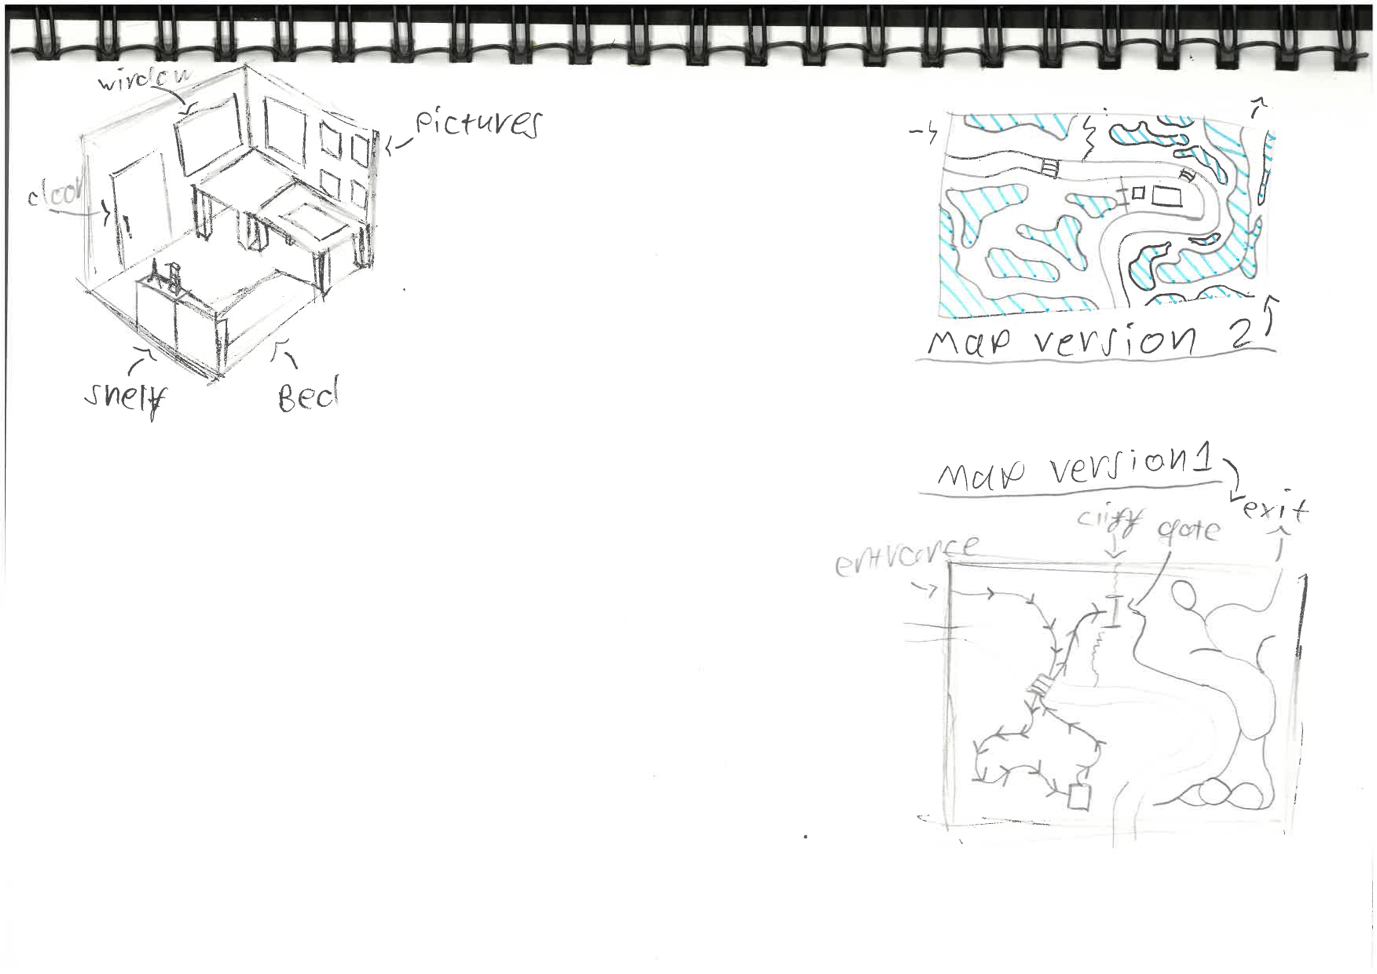 window
pictures
door
shelf
Bed
map version 2
map version1
exit
cliff gate
entrance